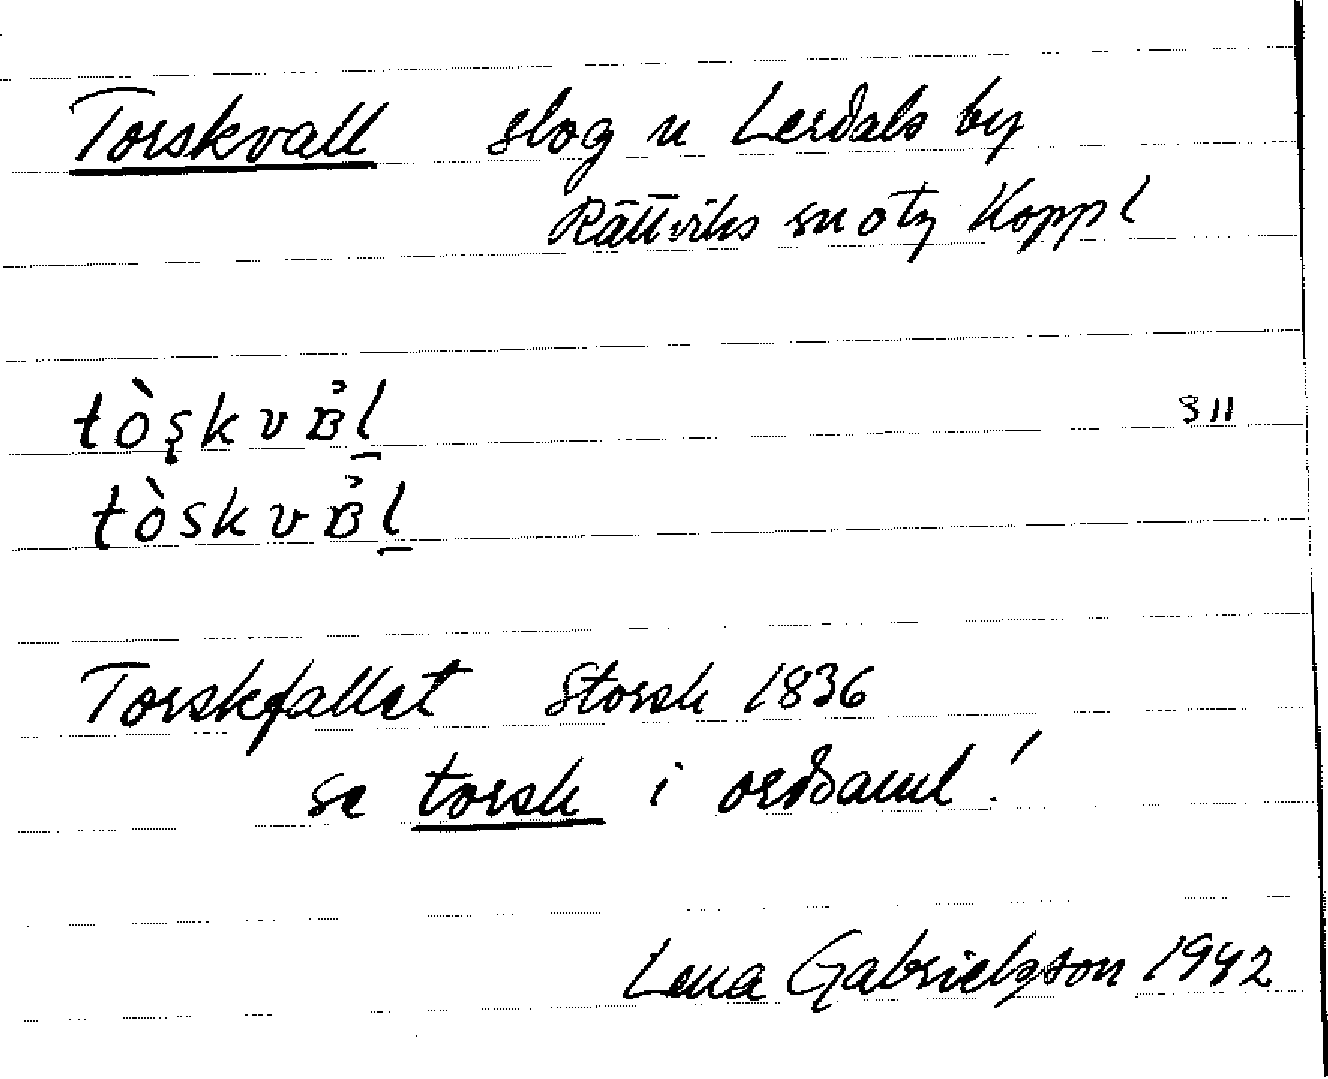 Torskvall slog u Lerdals by
Rättviks sn o tg Koppl
tòşkvʙ̉l̲ 311
tòskvʙ̉l̲
Torskfallet Storsk 1836
se torsk i ordsaml!
Lena Gabrielsson 1942